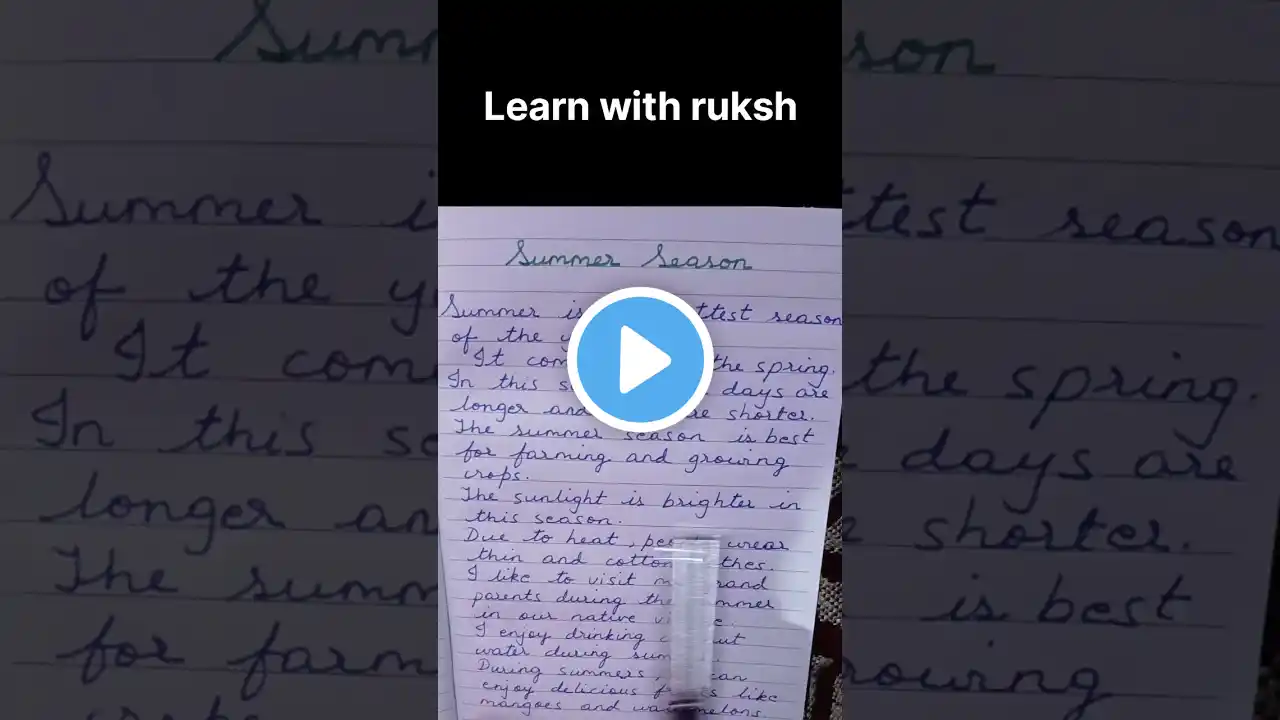 Learn with ruksh
Summer Season
Summer is season
of the
It the spring.
In this days are
longer and shorter.
The summer season is best
for farming and growing
crops.
The sunlight is brighter in
this season.
Due to heat, wear
thin and
I like to visit
parents during
in our native
I enjoy drinking
water during
During summers,
enjoy delicious like
mangoes and